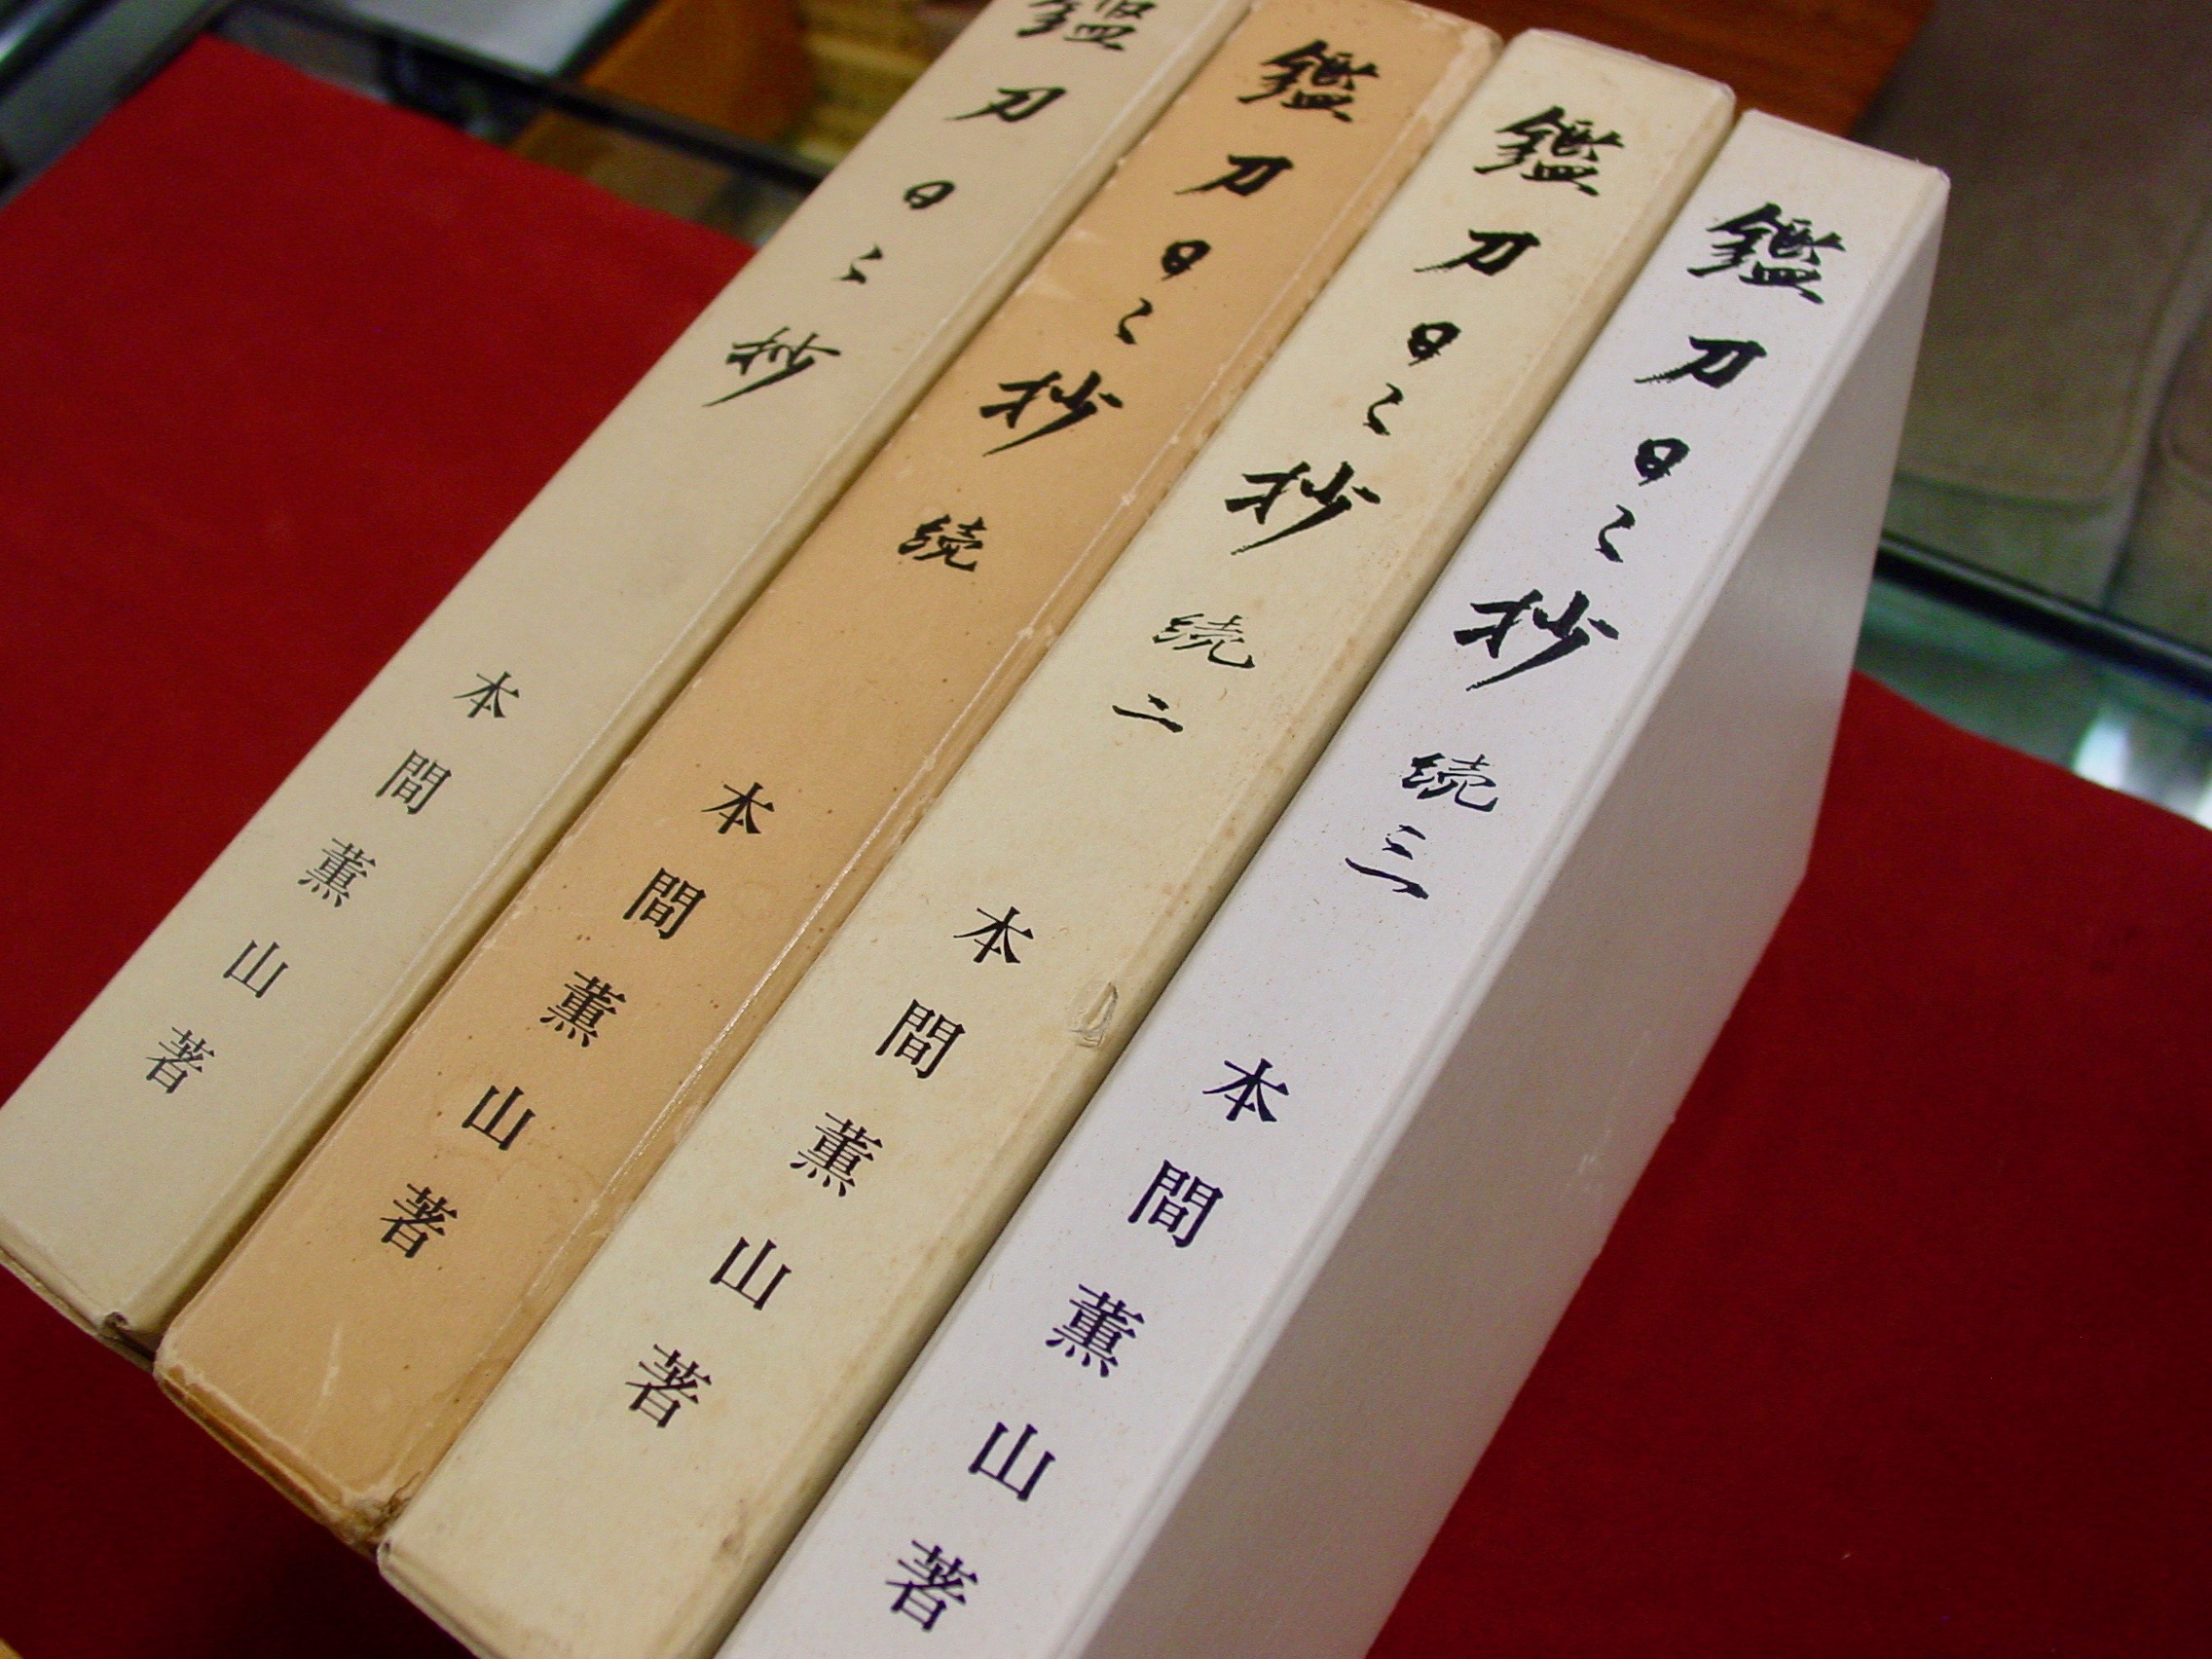 鑑刀日々抄
本間薫山著
鑑刀日々抄 続
本間薫山著
鑑刀日々抄 続二
本間薫山著
鑑刀日々抄 続三
本間薫山著